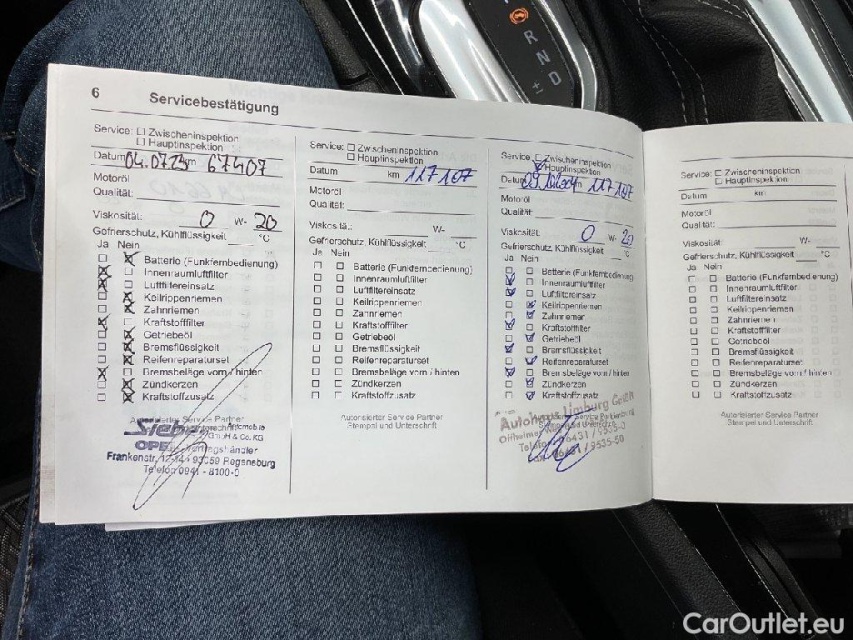 R
N
D
±
6 Servicebestätigung
Service: ☐ Zwischeninspektion
☐ Hauptinspektion
Datum 04.07.23 km 67407
Motoröl
Qualität:
Viskosität: 0 W- 20
Gefrierschutz, Kühlflüssigkeit °C
Ja Nein
☐ ☒ Batterie (Funkfernbedienung)
☒ ☐ Innenraumluftfilter
☒ ☐ Luftfiltereinsatz
☐ ☒ Keilrippenriemen
☐ ☒ Zahnriemen
☒ ☐ Kraftstofffilter
☐ ☒ Getriebeöl
☐ ☒ Bremsflüssigkeit
☐ ☒ Reifenreparaturset
☒ ☐ Bremsbeläge vorn / hinten
☐ ☒ Zündkerzen
☐ ☒ Kraftstoffzusatz
Autorisierter Service Partner
Automobile
GmbH & Co. KG
OPEL
Frankenstr. 12-14 • 93059 Regensburg
Telefon 0941 -
Service: ☐ Zwischeninspektion
☐ Hauptinspektion
Datum km 117107
Motoröl
Qualität:
Viskosität: W-
Gefrierschutz, Kühlflüssigkeit °C
Ja Nein
☐ ☐ Batterie (Funkfernbedienung)
☐ ☐ Innenraumluftfilter
☐ ☐ Luftfiltereinsatz
☐ ☐ Keilrippenriemen
☐ ☐ Zahnriemen
☐ ☐ Kraftstofffilter
☐ ☐ Getriebeöl
☐ ☐ Bremsflüssigkeit
☐ ☐ Reifenreparaturset
☐ ☐ Bremsbeläge vorn / hinten
☐ ☐ Zündkerzen
☐ ☐ Kraftstoffzusatz
Autorisierter Service Partner
Stempel und Unterschrift
Service: Zwischeninspektion
Hauptinspektion
Datum 117107
Motoröl
Qualität:
Viskosität: 0 W- 20
Gefrierschutz, Kühlflüssigkeit °C
Ja Nein
Batterie (Funkfernbedienung)
☑ ☐ Innenraumluftfilter
☑ ☐ Luftfiltereinsatz
☐ ☑ Keilrippenriemen
☐ ☑ Zahnriemen
☑ ☐ Kraftstofffilter
☐ ☑ Getriebeöl
☑ ☐ Bremsflüssigkeit
☐ ☑ Reifenreparaturset
☑ ☐ Bremsbeläge vorn / hinten
☐ ☑ Zündkerzen
☐ ☑ Kraftstoffzusatz
Autohaus Limburg GmbH
Service: ☐ Zwischeninspektion
☐ Hauptinspektion
Datum km
Motoröl
Qualität:
Viskosität: W-
Gefrierschutz, Kühlflüssigkeit °C
Ja Nein
☐ ☐ Batterie (Funkfernbedienung)
☐ ☐ Innenraumluftfilter
☐ ☐ Luftfiltereinsatz
☐ ☐ Keilrippenriemen
☐ ☐ Zahnriemen
☐ ☐ Kraftstofffilter
☐ ☐ Getriebeöl
☐ ☐ Bremsflüssigkeit
☐ ☐ Reifenreparaturset
☐ ☐ Bremsbeläge vorn / hinten
☐ ☐ Zündkerzen
☐ ☐ Kraftstoffzusatz
Autorisierter Service Partner
Stempel und Unterschrift
CarOutlet.eu